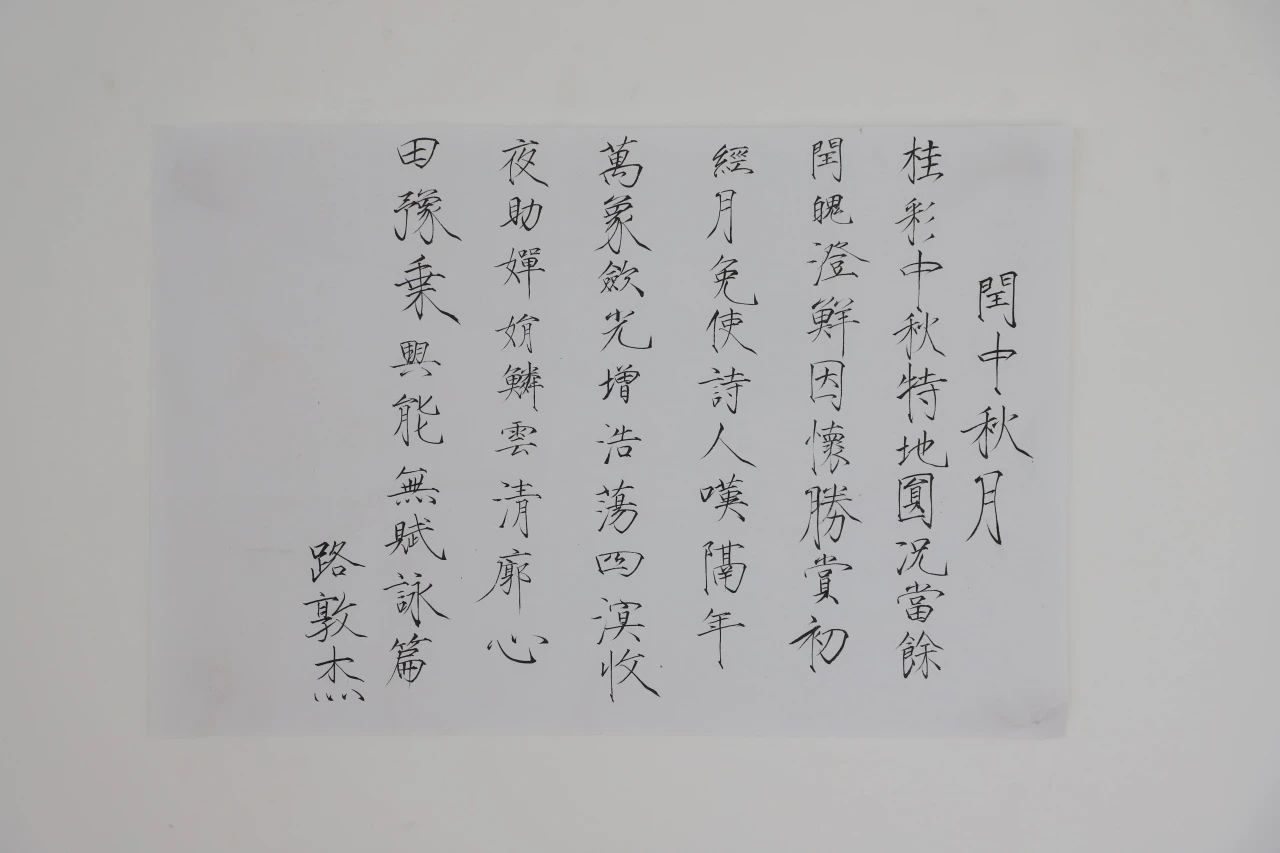 閏中秋月
桂彩中秋特地圓況當餘
閏魄澄鮮因懷勝賞初
經月免使詩人嘆隔年
萬象歛光增浩蕩四溟收
夜助嬋娟鱗雲清廓心
田豫乗興能無賦詠篇
路敦杰